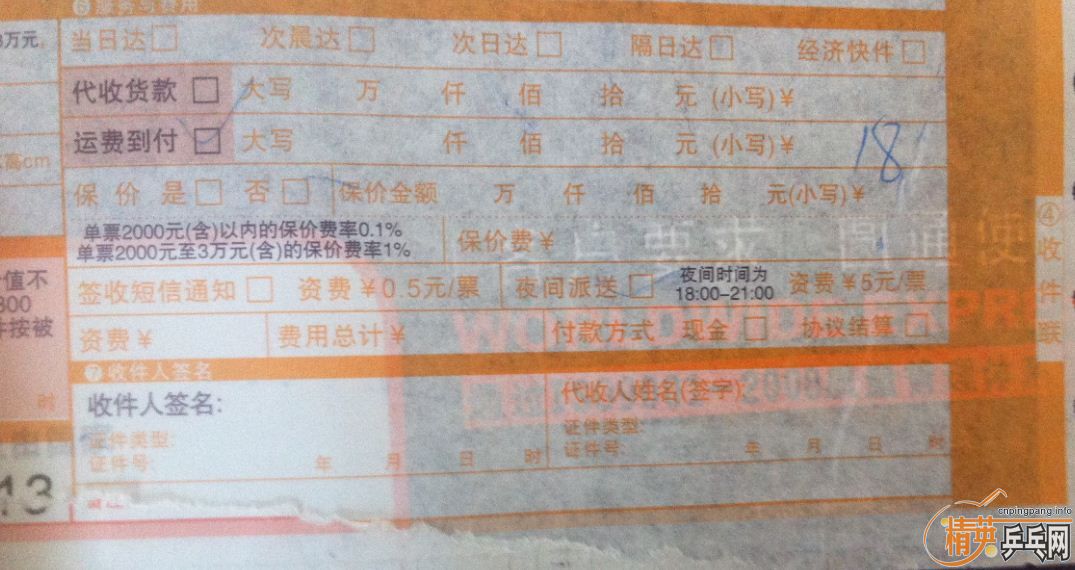 ⑥服务与费用
3万元,
当日达□ 次晨达□ 次日达□ 隔日达□ 经济快件□
代收货款□ 大写 万 仟 佰 拾 元(小写)¥
运费到付☑ 大写 仟 佰 拾 元(小写)¥ 18
高cm
保价 是□ 否□ 保价金额 万 仟 佰 拾 元(小写)¥
单票2000元(含)以内的保价费率0.1%
单票2000元至3万元(含)的保价费率1%
保价费¥
④收件联
值不
300
件按被
签收短信通知□ 资费¥0.5元/票 夜间派送□ 夜间时间为
18:00-21:00 资费¥5元/票
资费¥ 费用总计¥ 付款方式 现金□ 协议结算□
⑦收件人签名
收件人签名: 代收人姓名(签字):
证件类型: 证件类型:
证件号: 年 月 日 时 证件号: 年 月 日 时
13
cnpingpang.info
精英乒乓网